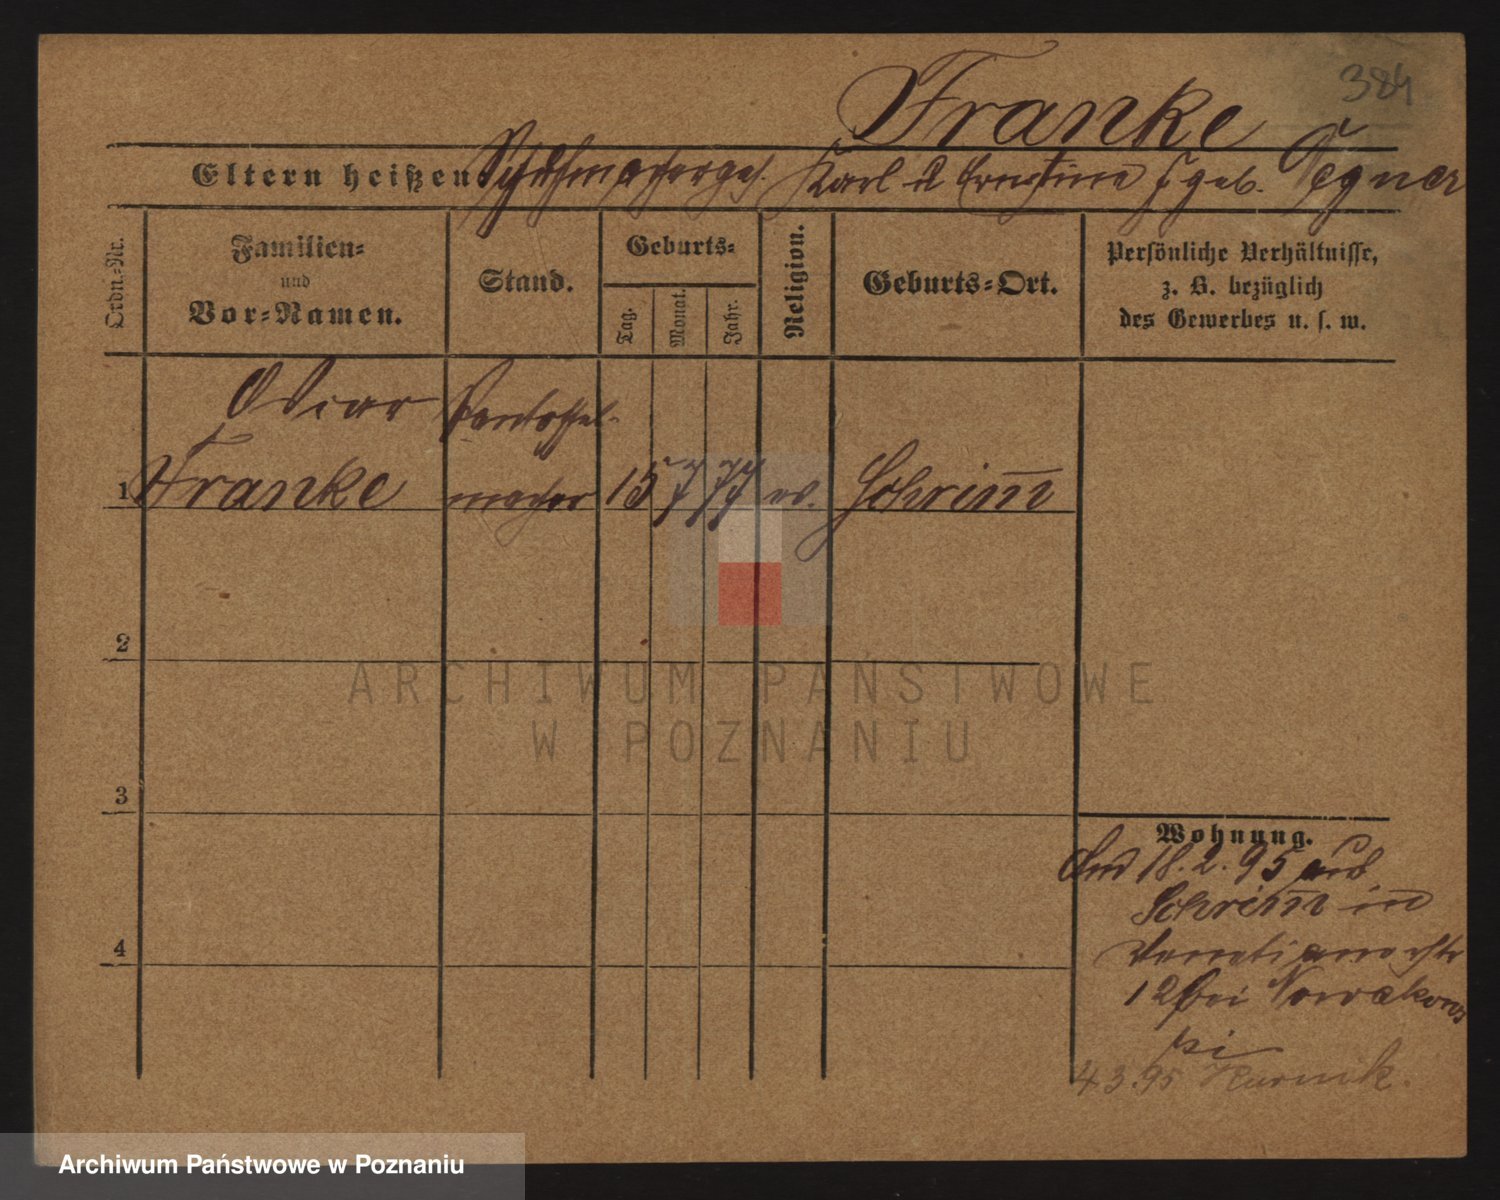 384
Franke
Eltern heißen Schuhmacherges. Karl u Ernestine geb. Tegner
Ordn.-Nr.
Familien-
und
Vor-Namen.
Stand.
Geburts-
Tag.
Monat.
Jahr.
Religion.
Geburts-Ort.
Persönliche Verhältnisse,
z. B. bezüglich
des Gewerbes u. s. w.
Oscar Pantoffel-
1 Franke macher 15 7 77 ev. Schrim̅
2
3
4
Wohnung.
18. 2. 95 aus
Schrim̅ in
12 bei Nowakows
ki
4 3. 95 Kurnik.
ARCHIWUM PAŃSTWOWE
W POZNANIU
Archiwum Państwowe w Poznaniu